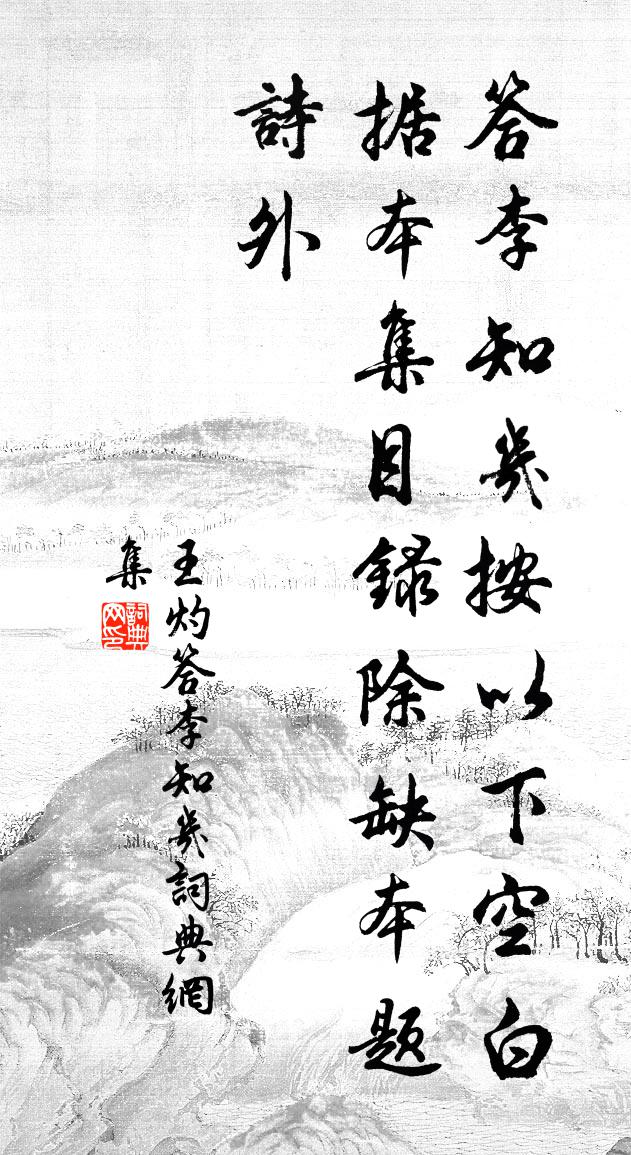 答李知幾按以下空白
据本集目録除缺本題
詩外
王灼答李知幾詞典網
集
詞典
网印